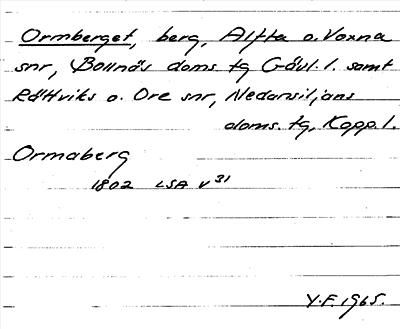 Ormberget, berg, Alfta o. Voxna
snr, Bollnäs doms. tg Gävl. l. samt
Rättviks o. Ore snr, Nedansiljans
doms. tg, Kopp. l.
Ormaberg
1802 LSA V31
Y.F. 1965.